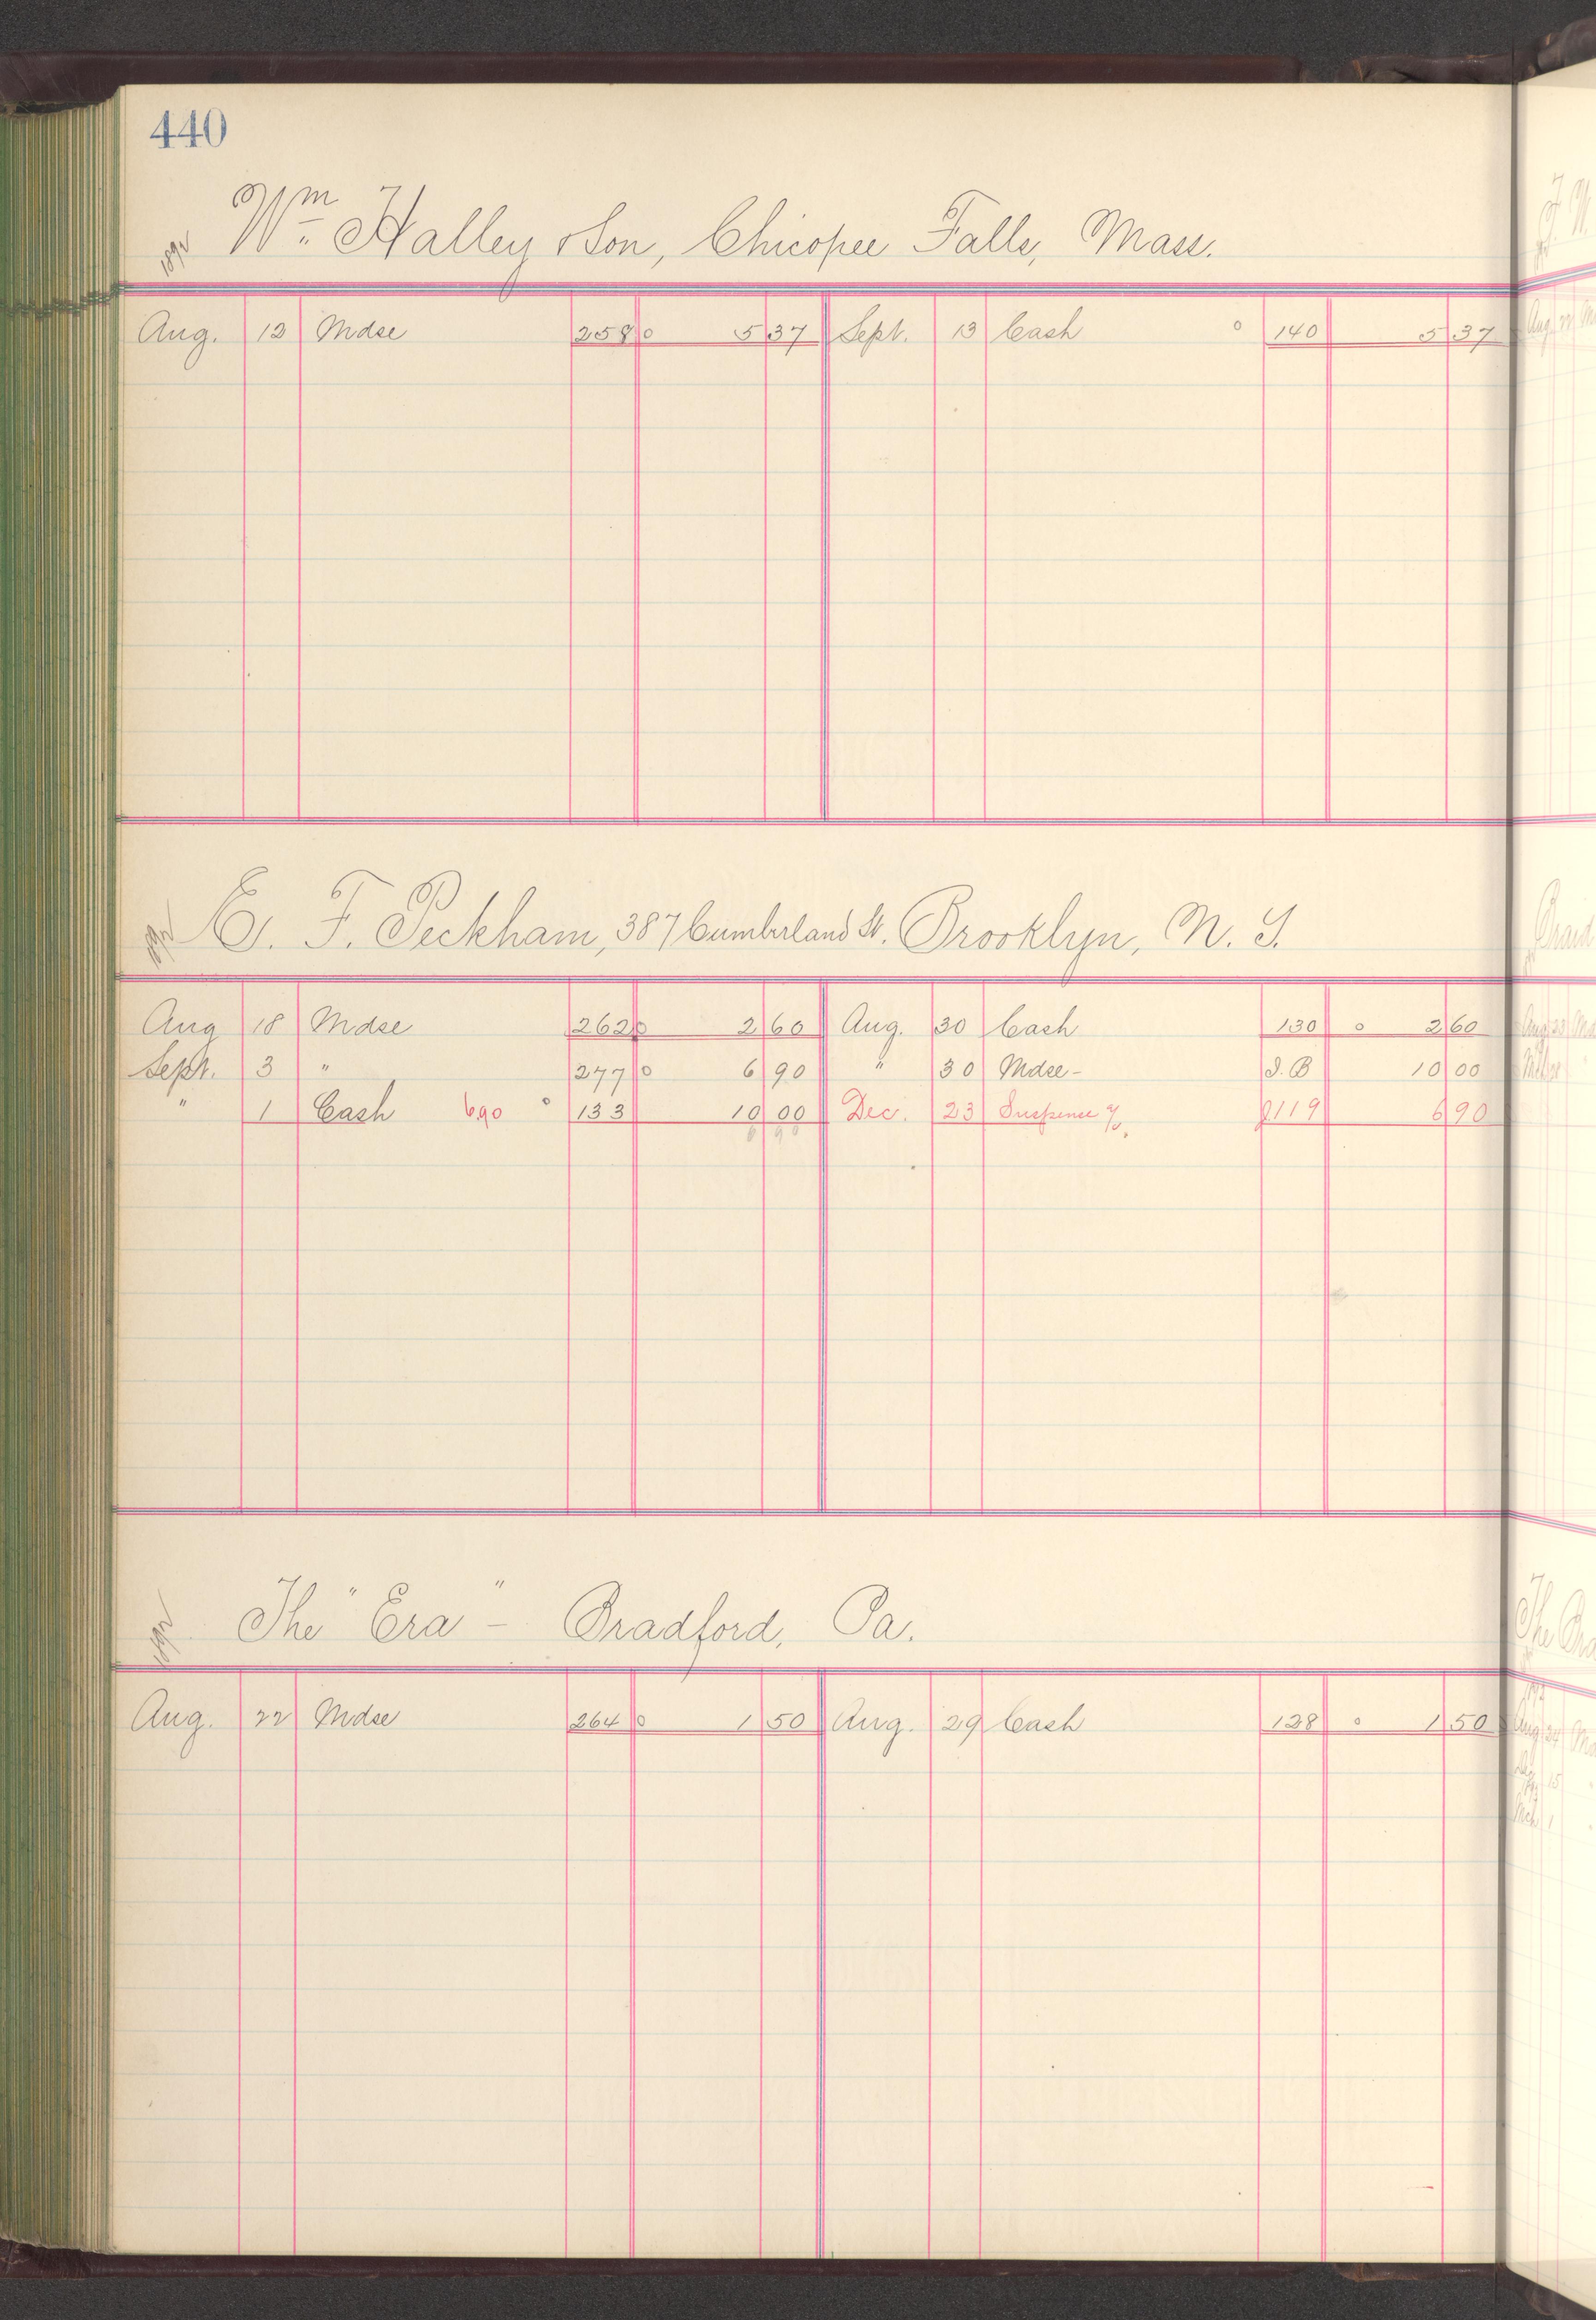 440
Wm. Halley & Son, Chicopee Falls, Mass.
1892
Aug. 12 Mdse 258 0 5 37 Sept. 13 Cash 0 140 5 37
E. F. Peckham, 387 Cumberland St. Brooklyn, N. Y.
1892
Aug 18 Mdse 262 0 2 60 Aug. 30 Cash 130 0 2 60
Sept. 3 " 277 0 6 90 " 30 Mdse - S.B 10 00
" 1 Cash 6.90 0 133 10 00 Dec. 23 Suspense a/c. J119 6 90
6 90
The "Era" - Bradford, Pa.
1892
Aug. 22 Mdse 264 0 1 50 Aug. 29 Cash 128 0 1 50